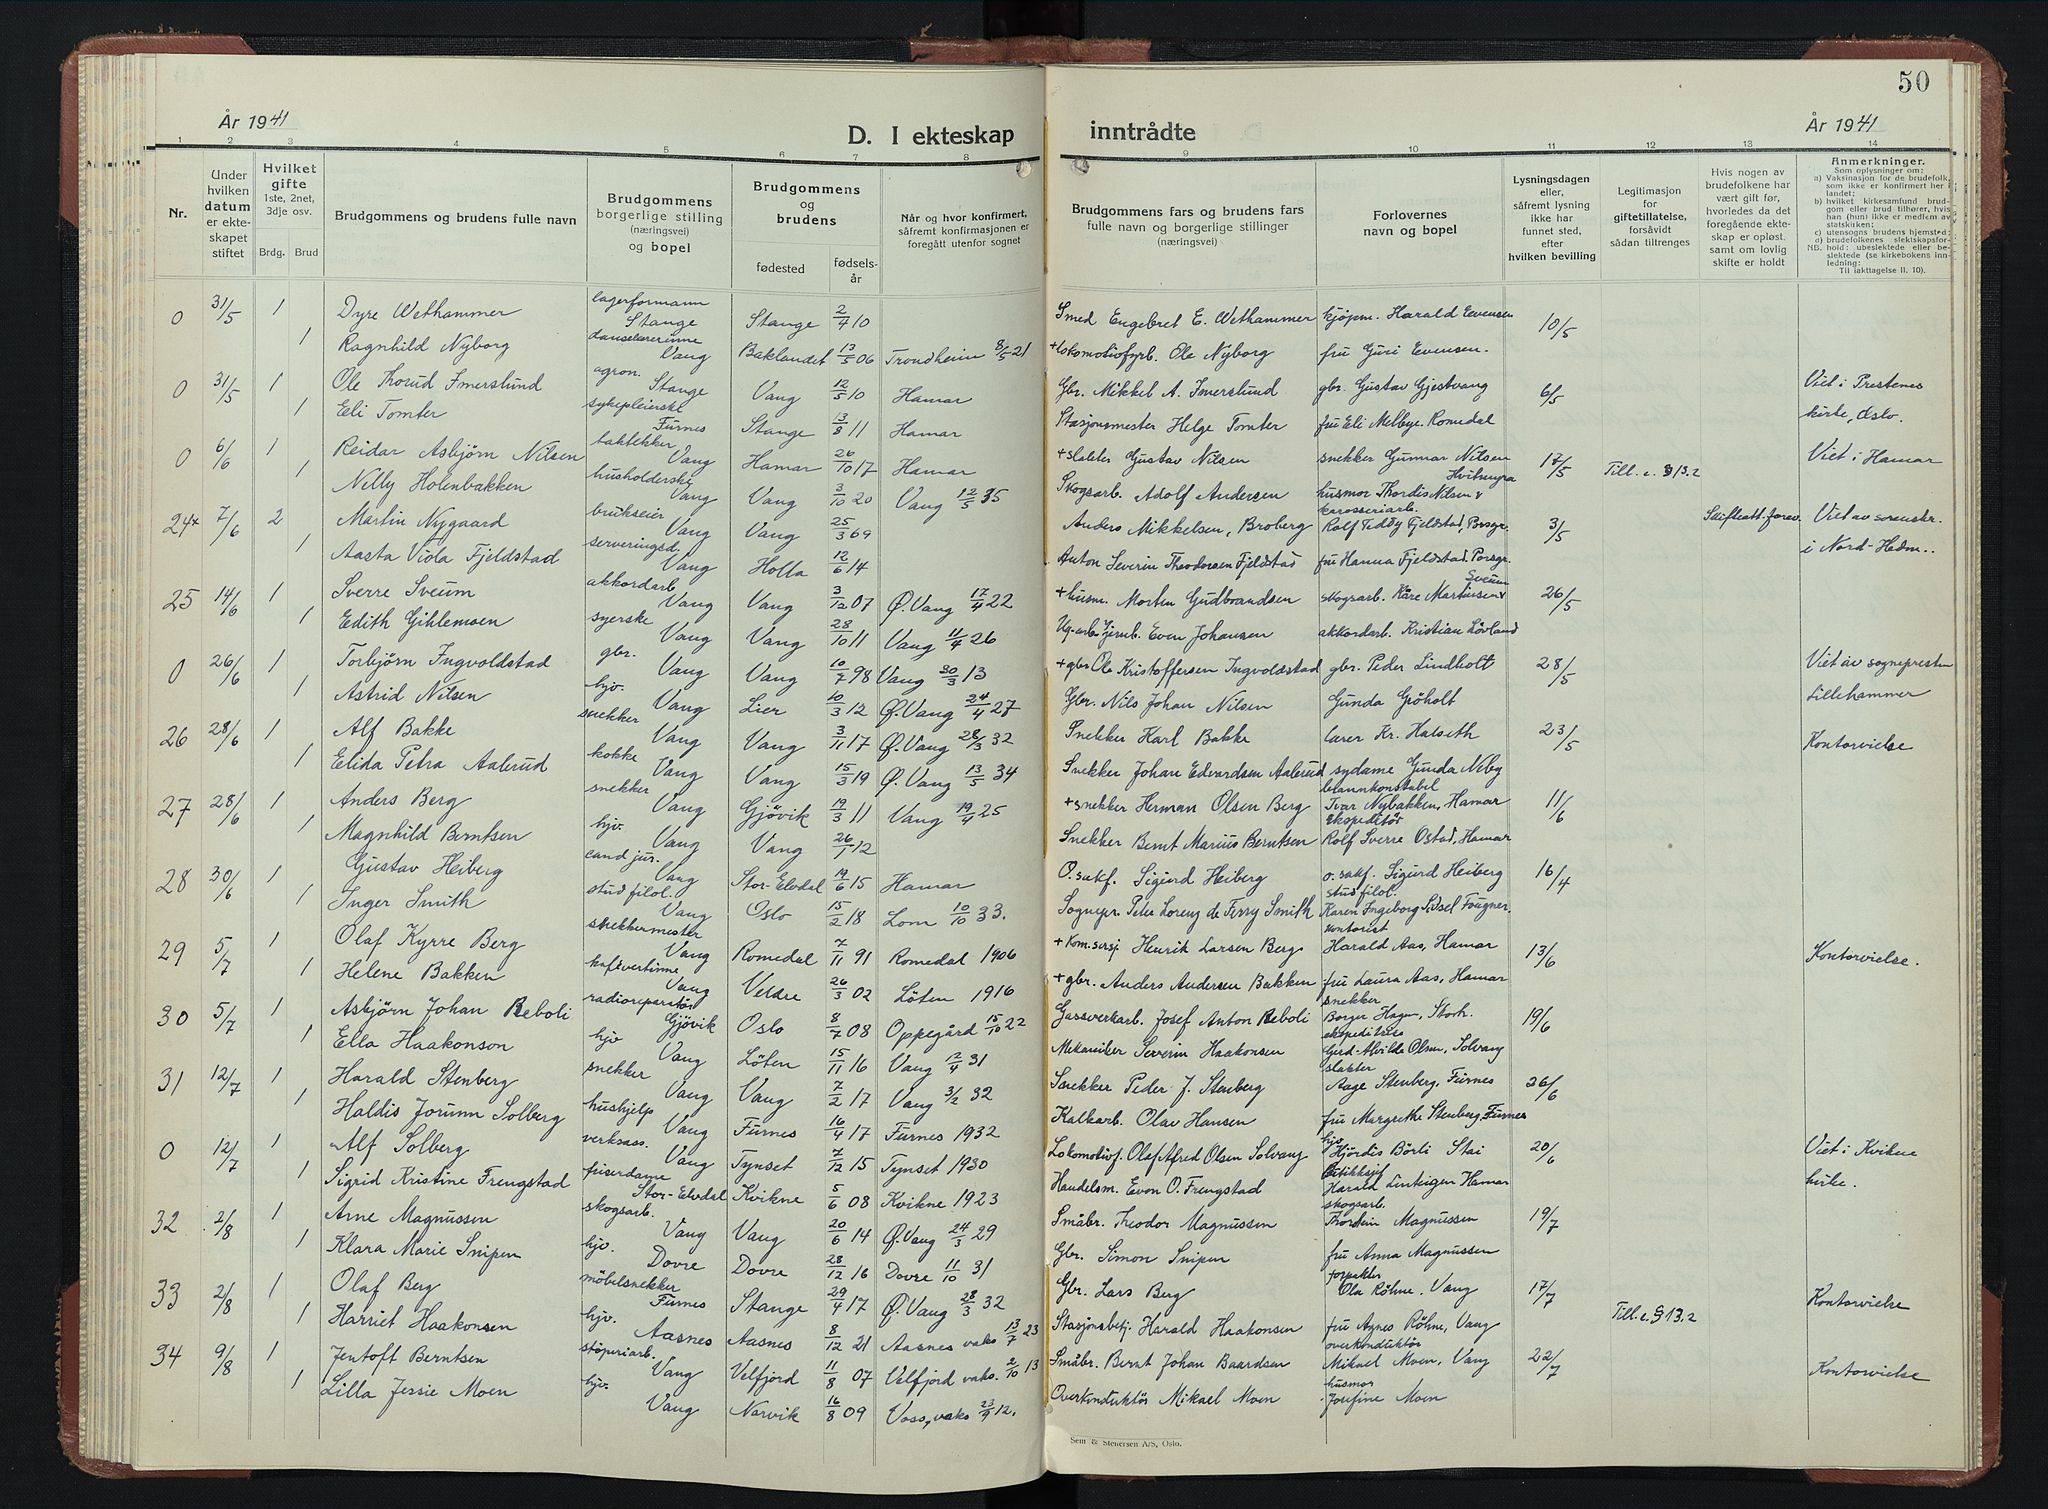 50
År 1941
D. I ekteskap
inntrådte
År 1941
1 2 3 4 5 6 7 8 9 10 11 12 13 14
Nr.
Under hvilken datum er ekteskapet stiftet
Hvilket gifte 1ste, 2net, 3dje osv.
Brdg. Brud
Brudgommens og brudens fulle navn
Brudgommens borgerlige stilling (næringsvei) og bopel
Brudgommens og brudens
fødested
fødselsår
Når og hvor konfirmert, såfremt konfirmasjonen er foregått utenfor sognet
Brudgommens fars og brudens fars fulle navn og borgerlige stillinger (næringsvei)
Forlovernes navn og bopel
Lysningsdagen eller, såfremt lysning ikke har funnet sted, efter hvilken bevilling
Legitimasjon for giftetillatelse, forsåvidt sådan tiltrenges
Hvis nogen av brudefolkene har vært gift før, hvorledes da det foregående ekteskap er opløst. samt om lovlig skifte er holdt
Anmerkninger.
Som oplysninger om:
a) Vaksinasjon for de brudefolk, som ikke er konfirmert her i landet;
b) hvilket kirkesamfund brudgom eller brud tilhører, hvis han (hun) ikke er medlem av statskirken;
c) utensogns brudens hjemsted;
d) brudefolkenes slektskapsforhold: ubeslektede eller beslektede (se kirkebokens innledning:
NB.
Til iakttagelse II. 10).
0 31/5 1 Dyre Wethammer lagerformann Stange Stange 2/4 10 Smed Engebret E. Wethammer kjøpm. Harald Evensen 10/5
1 Ragnhild Nyborg danselærerinne Vang Baklandet 13/5 06 Trondheim 8/5 21 +Lokomotivfyrb. Ole Nyborg fru Guri Evensen.
0 31/5 1 Ole Thorud Imerslund agron. Stange Vang 12/5 10 Hamar Gbr. Mikkel A. Imerslund gbr. Gustav Gjestvang 6/5 Viet i Prestenes
1 Eli Tomter sykepleierske Furnes Stange 13/8 11 Hamar Stasjonsmester Helge Tomter fru Eli Melbye. Romedal kirke, Oslo.
0 6/6 1 Reidar Asbjørn Nilsen taktekker Vang Hamar 26/10 17 Hamar +slakter Gustav Nilsen snekker Gunnar Nilsen 17/5 Till. e. § 13.2 Viet i Hamar
1 Nelly Holenbakken husholderske Vang Vang 3/10 20 Vang 12/5 35 Skogsarb. Adolf Andersen husmor Thordis Nilsen
24 7/6 2 Martin Nygaard brukseier Vang Vang 25/3 69 Anders Mikkelsen, Broberg karosseriarb. Rolf Teddy Fjeldstad, Porsgr. 3/5 Skifteatt. forev. Viet av sorenskr.
1 Aasta Viola Fjeldstad serveringsd. Vang Holla 12/6 14 Anton Severin Theodorsen Fjeldstad fru Hanna Fjeldstad. Porsgr. i Nord-Hedm..
25 14/6 1 Sverre Sveum akkordarb Vang Vang 3/12 07 Ø. Vang 17/4 22 +husm. Morten Gudbrandsen skogsarb. Kåre Martinsen Sveum 26/5
1 Edith Gihlemoen syerske Vang Vang 28/10 11 Vang 11/4 26 Even Johansen akkordarb. Kristian Løvland
0 26/6 1 Torbjørn Ingvoldstad gbr. Vang Vang 10/7 98 Vang 30/3 13 +gbr Ole Kristoffersen Ingvoldstad gbr. Peder Lindholt 28/5 Viet av sognepresten
1 Astrid Nilsen hjv. Vang Lier 10/3 12 Ø. Vang 24/4 27 Gbr. Nils Johan Nilsen Gunda Gröholt Lillehammer
26 28/6 1 Alf Bakke snekker Vang Vang 3/11 17 Ø. Vang 28/3 32 Snekker Karl Bakke lærer Kr. Halseth 23/5 Kontorvielse
1 Elida Petra Aalerud kokke Vang Vang 15/3 19 Ø. Vang 13/5 34 Snekker Johan Edvardsen Aalerud sydame Gunda Neby
27 28/6 1 Anders Berg snekker Vang Gjövik 19/3 11 Vang 19/4 25 +snekker Herman Olsen Berg Ivar Nybakken, Hamar 11/6
1 Magnhild Berntsen hjv. Vang Vang 26/1 12 Snekker Bernt Marius Berntsen ekspeditör Rolf Sverre Ostad, Hamar
28 30/6 1 Gustav Heiberg cand jur. Vang Stor-Elvdal 19/6 15 Hamar O.sakf. Sigurd Heiberg o. sakf. Sigurd Heiberg 16/4
1 Inger Smith stud filol. Vang Oslo 15/2 18 Lom 10/10 33. Sognepr. Peter Lorenz de Ferry Smith stud filol. Karen Ingeborg Sidsel Fougner.
29 5/7 1 Olaf Kyrre Berg snekkermester Vang Romedal 7/11 91 Romedal 1906 Henrik Larsen Berg kontorist Harald Aas, Hamar 13/6 Kontorvielse.
1 Helene Bakken kafévertinne Vang Veldre 26/3 02 Löten 1916 +gbr. Anders Andersen Bakken fru Laura Aas, Hamar
30 5/7 1 Asbjörn Johan Reboli radioreparatör Gjövik Oslo 8/7 08 Oppegård 15/10 22 Gassverkarb. Josef Anton Reboli snekker Borger Hagen, Storh. 19/6
1 Ella Haakonson hjv Vang Löten 15/11 16 Vang 12/4 31 Mekaniker Severin Haakonsen ekspeditrise Gerd-Alvilde Olsen, Solvang
31 12/7 1 Harald Stenberg snekker Vang Vang 7/2 17 Vang 3/2 32 Snekker Peder J. Stenberg slakter Aage Stenberg, Furnes 26/6
1 Haldis Jorunn Solberg hushjelp Vang Furnes 16/4 17 Furnes 1932 Kalkarb. Olav Hansen fru Margrethe Stenberg, Furnes
0 12/7 1 Alf Solberg verksass. Vang Tynset 7/12 15 Tynset 1930 Lokomotivf. Olaf Alfred Olsen Solvang hjv Hjördis Börli Stai 20/6 Viet i Kvikne
1 Sigrid Kristine Frengstad friserdame Stor-Elvdal Kvikne 5/6 08 Kvikne 1923 Handelsm. Even O. Frengstad Harald Linkigen Hamar kirke.
32 2/8 1 Arne Magnussen skogsarb. Vang Vang 20/6 14 Ø. Vang 24/3 29 Småbr. Theodor Magnussen skogsarb. Thorstein Magnussen 19/7
1 Klara Marie Snipen hjv. Dovre Dovre 28/12 16 Dovre 11/10 31 Gbr. Simon Snipen fru Anna Magnussen
33 2/8 1 Olaf Berg möbelsnekker Furnes Stange 29/4 17 Ø. Vang 28/3 32 Gbr. Lars Berg forpakter Ola Röhne, Vang 17/7 Kontorvielse
1 Harriet Haakonsen hjv. Aasnes Aasnes 8/12 21 Aasnes vaks 13/7 23 Stasjonsbetj. Harald Haakonsen fru Agnes Röhne, Vang Till. e. § 13.2
34 9/8 1 Jentoft Berntsen stöperiarb. Vang Velfjord 11/8 07 Velfjord vaks. 2/10 13 Småbr. Bernt Johan Baardsen overkonduktör Mikael Moen, Vang 22/7 Kontorvielse
1 Lilla Jessie Moen hjv. Vang Narvik 16/8 09 Voss, vaks 23/9 12. Overkonduktör Mikael Moen husmor Josefine Moen
Sem & Stenersen A/S, Oslo.